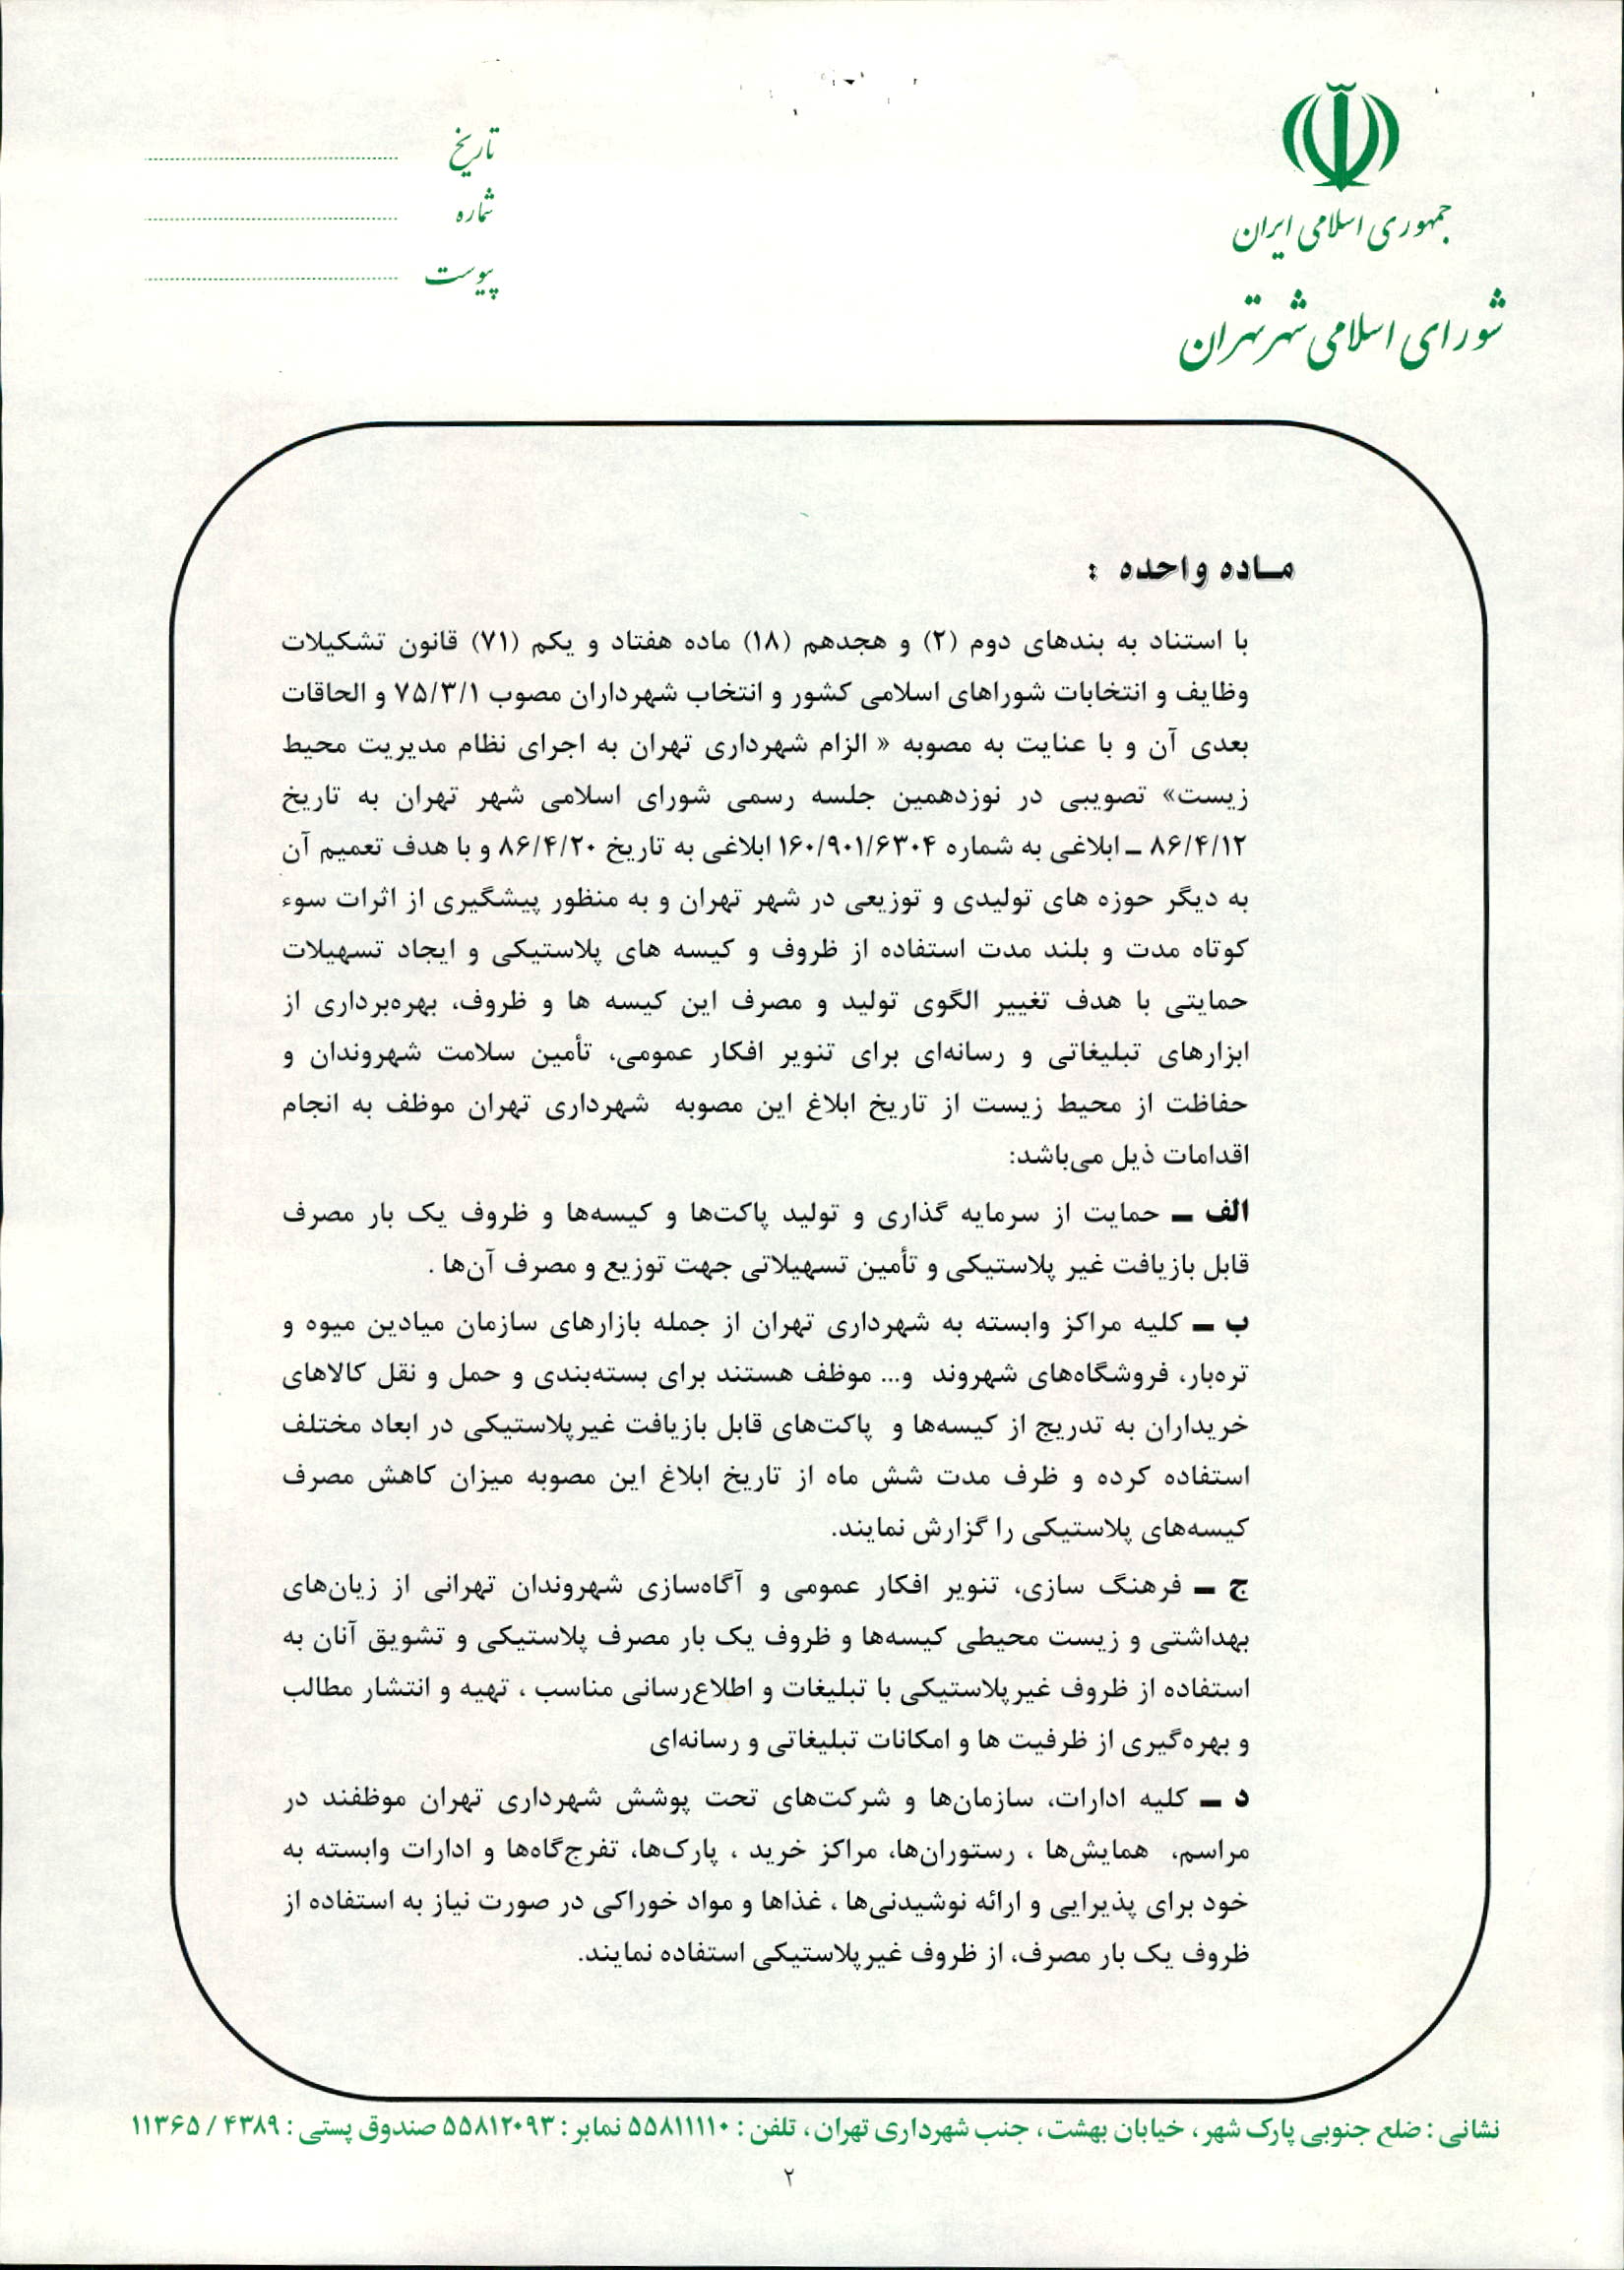 جمهوری اسلامی ایران
شورای اسلامی شهر تهران
تاریخ
شماره
پیوست
ماده واحده :
با استناد به بندهای دوم (۲) و هجدهم (۱۸) ماده هفتاد و یکم (۷۱) قانون تشکیلات
وظایف و انتخابات شوراهای اسلامی کشور و انتخاب شهرداران مصوب ۷۵/۳/۱ و الحاقات
بعدی آن و با عنایت به مصوبه « الزام شهرداری تهران به اجرای نظام مدیریت محیط
زیست» تصویبی در نوزدهمین جلسه رسمی شورای اسلامی شهر تهران به تاریخ
۸۶/۴/۱۲ ـ ابلاغی به شماره ۱۶۰/۹۰۱/۶۳۰۴ ابلاغی به تاریخ ۸۶/۴/۲۰ و با هدف تعمیم آن
به دیگر حوزه های تولیدی و توزیعی در شهر تهران و به منظور پیشگیری از اثرات سوء
کوتاه مدت و بلند مدت استفاده از ظروف و کیسه های پلاستیکی و ایجاد تسهیلات
حمایتی با هدف تغییر الگوی تولید و مصرف این کیسه ها و ظروف، بهره‌برداری از
ابزارهای تبلیغاتی و رسانه‌ای برای تنویر افکار عمومی، تأمین سلامت شهروندان و
حفاظت از محیط زیست از تاریخ ابلاغ این مصوبه شهرداری تهران موظف به انجام
اقدامات ذیل می‌باشد:
الف ـ حمایت از سرمایه گذاری و تولید پاکت‌ها و کیسه‌ها و ظروف یک بار مصرف
قابل بازیافت غیر پلاستیکی و تأمین تسهیلاتی جهت توزیع و مصرف آن‌ها .
ب ـ کلیه مراکز وابسته به شهرداری تهران از جمله بازارهای سازمان میادین میوه و
تره‌بار، فروشگاه‌های شهروند و... موظف هستند برای بسته‌بندی و حمل و نقل کالاهای
خریداران به تدریج از کیسه‌ها و پاکت‌های قابل بازیافت غیرپلاستیکی در ابعاد مختلف
استفاده کرده و ظرف مدت شش ماه از تاریخ ابلاغ این مصوبه میزان کاهش مصرف
کیسه‌های پلاستیکی را گزارش نمایند.
ج ـ فرهنگ سازی، تنویر افکار عمومی و آگاه‌سازی شهروندان تهرانی از زیان‌های
بهداشتی و زیست محیطی کیسه‌ها و ظروف یک بار مصرف پلاستیکی و تشویق آنان به
استفاده از ظروف غیرپلاستیکی با تبلیغات و اطلاع‌رسانی مناسب ، تهیه و انتشار مطالب
و بهره‌گیری از ظرفیت ها و امکانات تبلیغاتی و رسانه‌ای
د ـ کلیه ادارات، سازمان‌ها و شرکت‌های تحت پوشش شهرداری تهران موظفند در
مراسم، همایش‌ها ، رستوران‌ها، مراکز خرید ، پارک‌ها، تفرج‌گاه‌ها و ادارات وابسته به
خود برای پذیرایی و ارائه نوشیدنی‌ها ، غذاها و مواد خوراکی در صورت نیاز به استفاده از
ظروف یک بار مصرف، از ظروف غیرپلاستیکی استفاده نمایند.
نشانی : ضلع جنوبی پارک شهر، خیابان بهشت، جنب شهرداری تهران، تلفن : ۵۵۸۱۱۱۱۰ نمابر : ۵۵۸۱۲۰۹۳ صندوق پستی : ۴۳۸۹ / ۱۱۳۶۵
۲